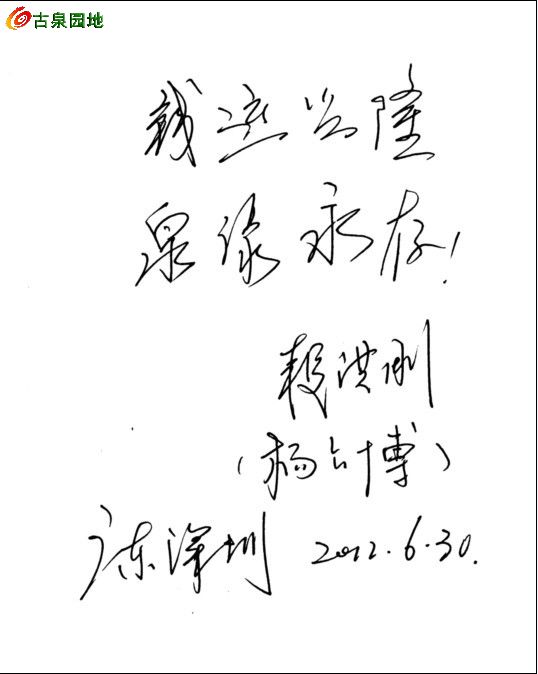 古泉园地
钱运兴隆
泉缘永存！
洪刚
（杨六博）
广东深圳 2012.6.30.